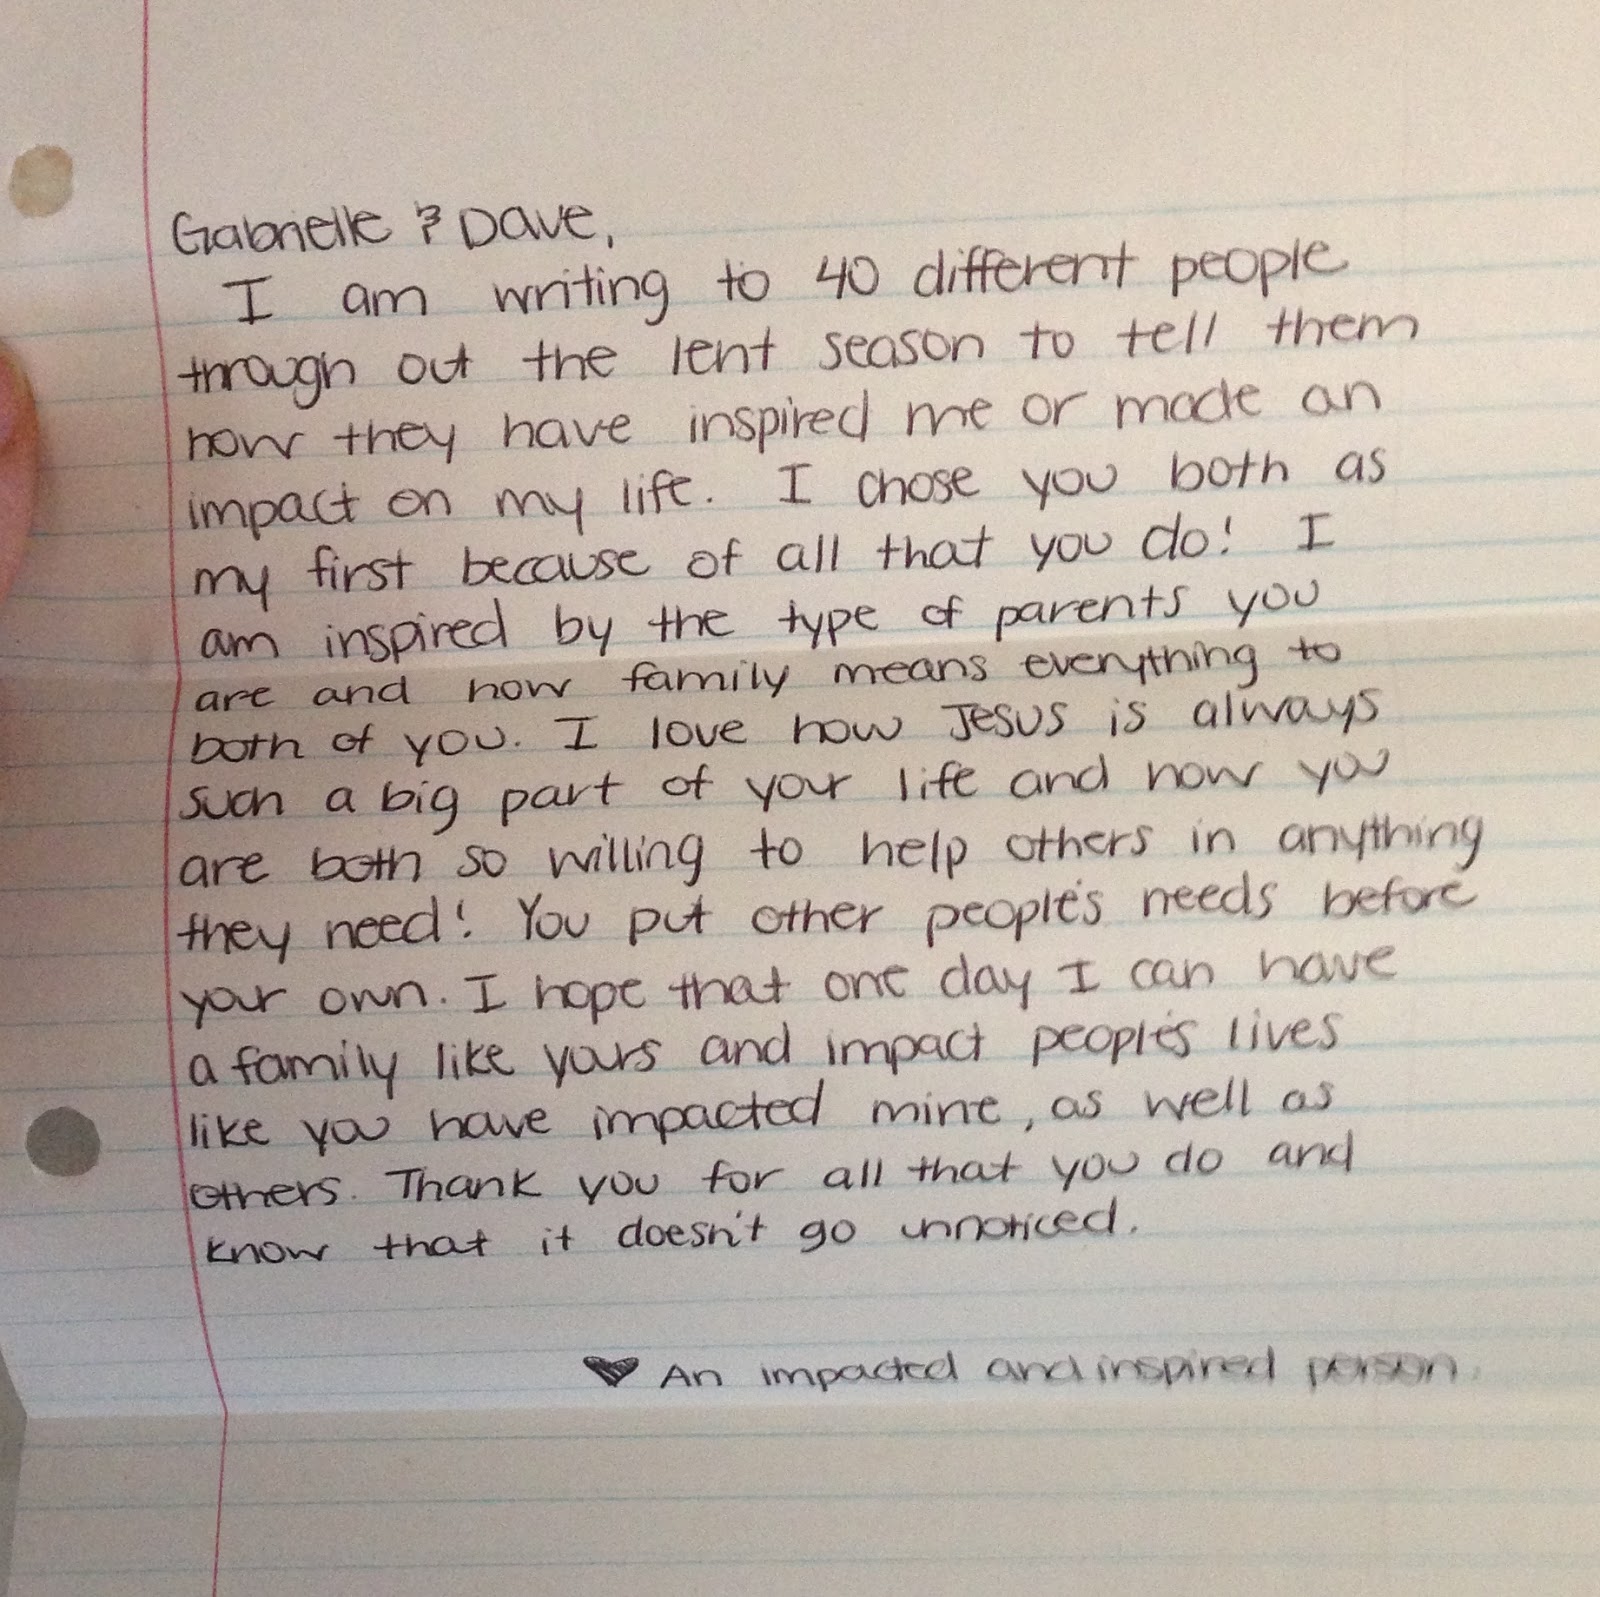 Gabrielle & Dave,
I am writing to 40 different people
through out the lent season to tell them
how they have inspired me or made an
impact on my life. I chose you both as
my first because of all that you do! I
am inspired by the type of parents you
are and how family means everything to
both of you. I love how Jesus is always
such a big part of your life and how you
are both so willing to help others in anything
they need! You put other people's needs before
your own. I hope that one day I can have
a family like yours and impact people's lives
like you have impacted mine, as well as
others. Thank you for all that you do and
know that it doesn't go unnoticed.
♥ An impacted and inspired person.